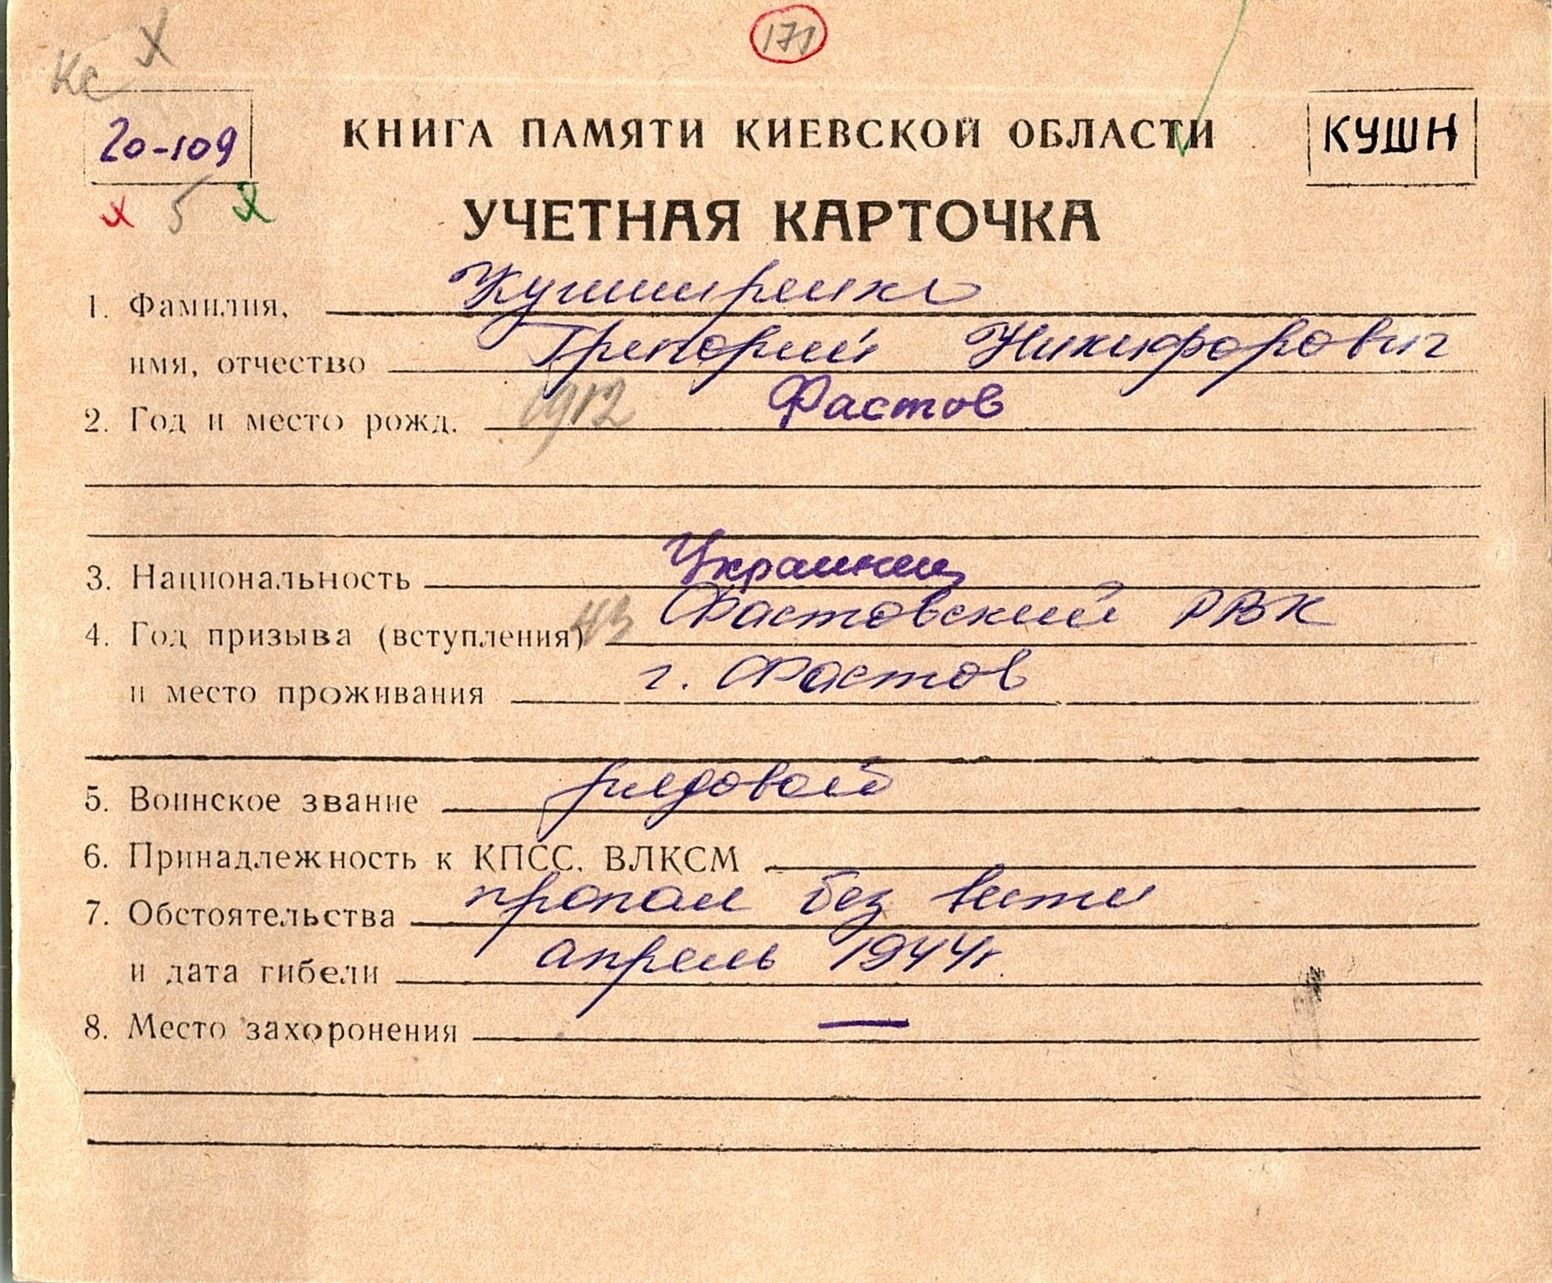 171
Х
Кс
20-109
КНИГА ПАМЯТИ КИЕВСКОЙ ОБЛАСТИ
КУШН
х 5 х
УЧЕТНАЯ КАРТОЧКА
1. Фамилия, Кушниренко
имя, отчество Григорий Никифорович
2. Год и место рожд. 1912 Фастов
3. Национальность Украинец
4. Год призыва (вступления) 43 Фастовский РВК
и место проживания г. Фастов
5. Воинское звание рядовой
6. Принадлежность к КПСС, ВЛКСМ
7. Обстоятельства пропал без вести
и дата гибели апрель 1944г.
8. Место захоронения —